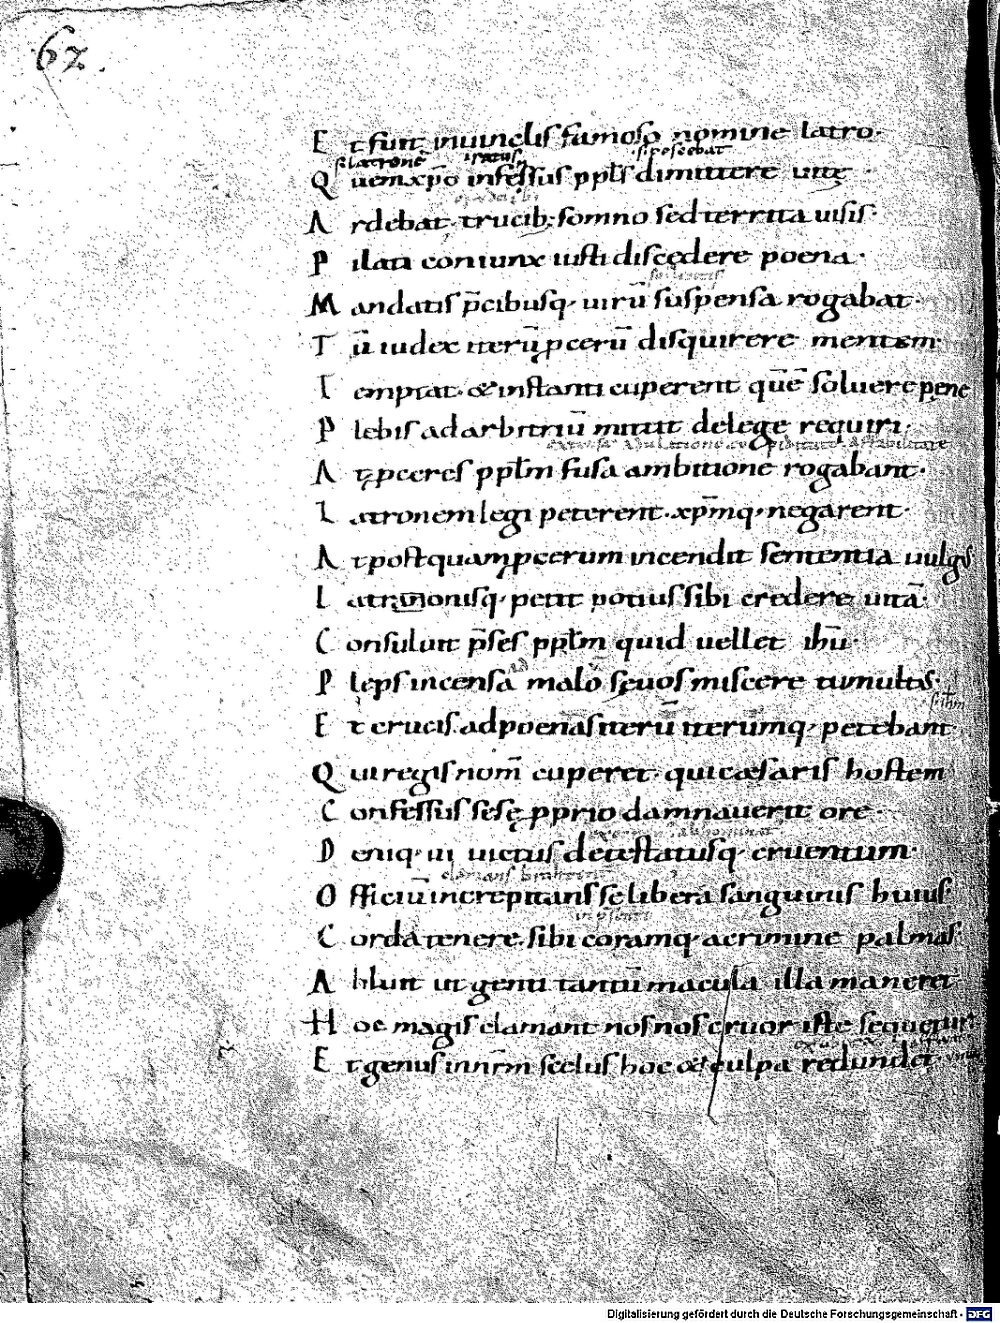 62.
E t fuit inuinclis famoso nomine latro·
s. latronē iratus s. poscebat
Q uem xp̄o infessus ppl̄s dimittere uitę·
A rdebat· trucib; somno sed territa uisis·
P ilati coniunx iusti discędere poena·
M andatis p̄cibusq· uirū suspensa rogabat·
T ū iudex iterū pcerū disquirere mentem·
T emptat· & instanti cuperent quē soluere pęne
P lebis ad arbitriū mittit de lege requiri·
A t pceres ppl̄m fusa ambitione rogabant·
L atronem legi peterent· xp̄mq· negarent·
A t postquam pcerum incendit sententia uulgus
L atronisq· petit potius sibi credere uitā·
C onsulunt p̄ses ppl̄m quid uellet ih̄u·
P leps incensa malo sęuos miscere tumultus·
s. ih̄m
E t crucis ad poenas iterū iterumq· petebant·
Q ui regis nom̄ cuperet· qui cæsaris hostem
C onfessus sese pprio damnauerit ore·
D eniq· ui uictus detestatusq· cruentum·
clamans
O fficiū increpitans se libera sanguinis huius
C orda tenere· sibi coramq· a crimine palmas·
A bluit ut genti tantū macula illa maneret
H oc magis clamant nos nos cruor iste sequetur
E t genus in nr̄m scelus hoc & culpa redundet·
Digitalisierung gefördert durch die Deutsche Forschungsgemeinschaft - DFG